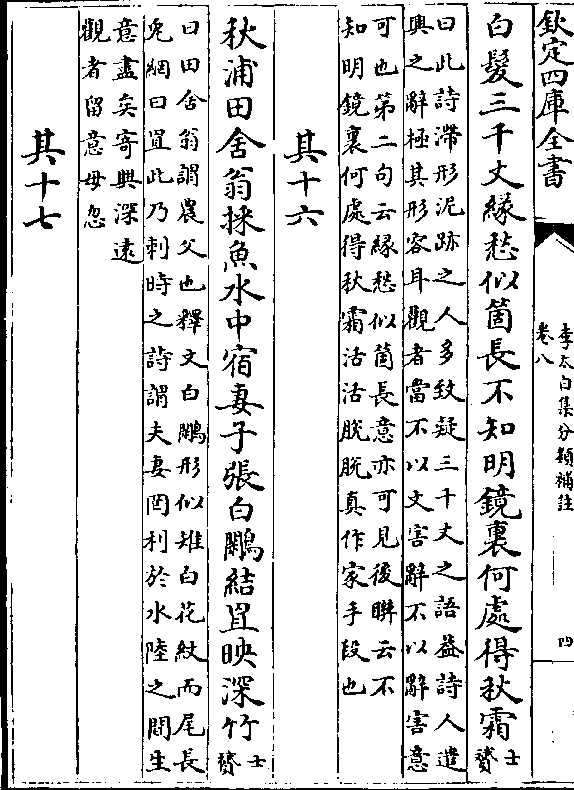 欽定四庫全書
李太白集分類補註
卷八
四
白髮三千丈緣愁似箇長不知明鏡裏何處得秋霜士
贇
曰此詩滯形泥跡之人多致疑三千丈之語葢詩人遣
興之辭極其形容耳觀者當不以文害辭不以辭害意
可也第二句云緣愁似箇長意亦可見後聯云不
知明鏡裏何處得秋霜活活脫脫真作家手段也
其十六
秋浦田舍翁採魚水中宿妻子張白鷴結罝映深竹士
贇
曰田舍翁謂農父也釋文白鷴形似雉白花紋而尾長
兎網曰罝此乃刺時之詩謂夫妻罔利於水陸之間生
意盡矣寄興深遠
觀者留意毋忽
其十七